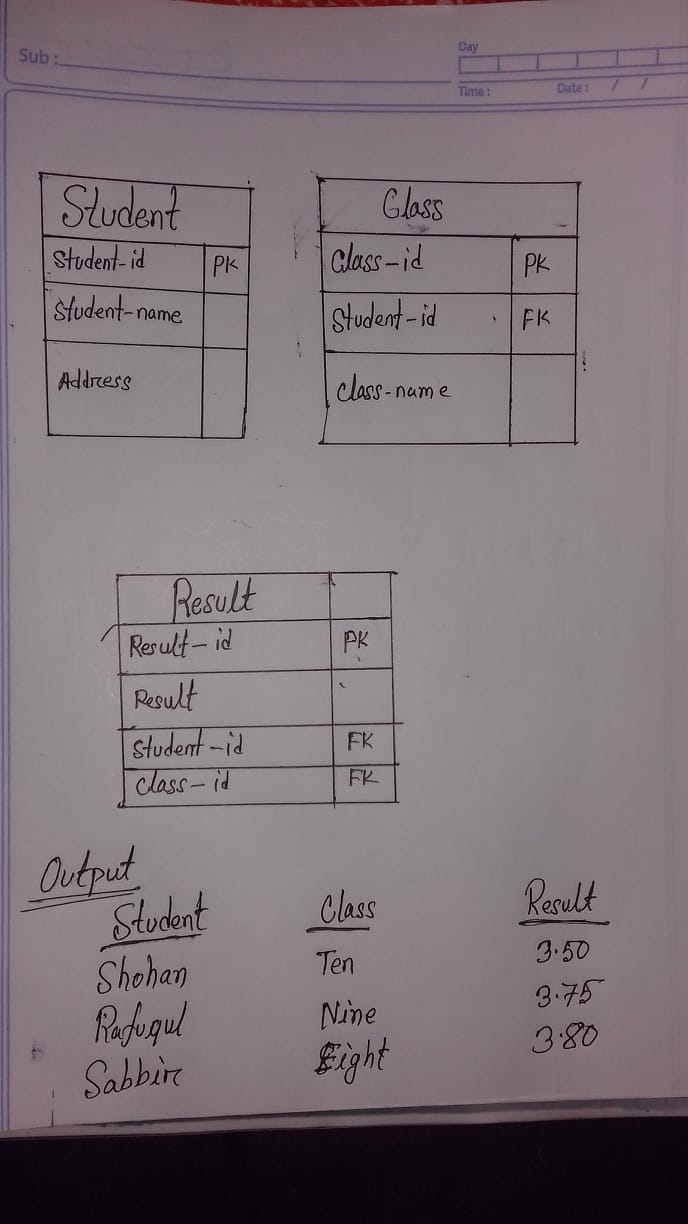 Sub :
Day
Time :
Date : / /
Student
Student-id PK
Student-name
Address
Class
Class-id PK
Student-id FK
Class-name
Result
Result-id PK
Result
Student-id FK
Class-id FK
Output
Student Class Result
Shohan Ten 3.50
Rafuqul Nine 3.75
Sabbir Eight 3.80